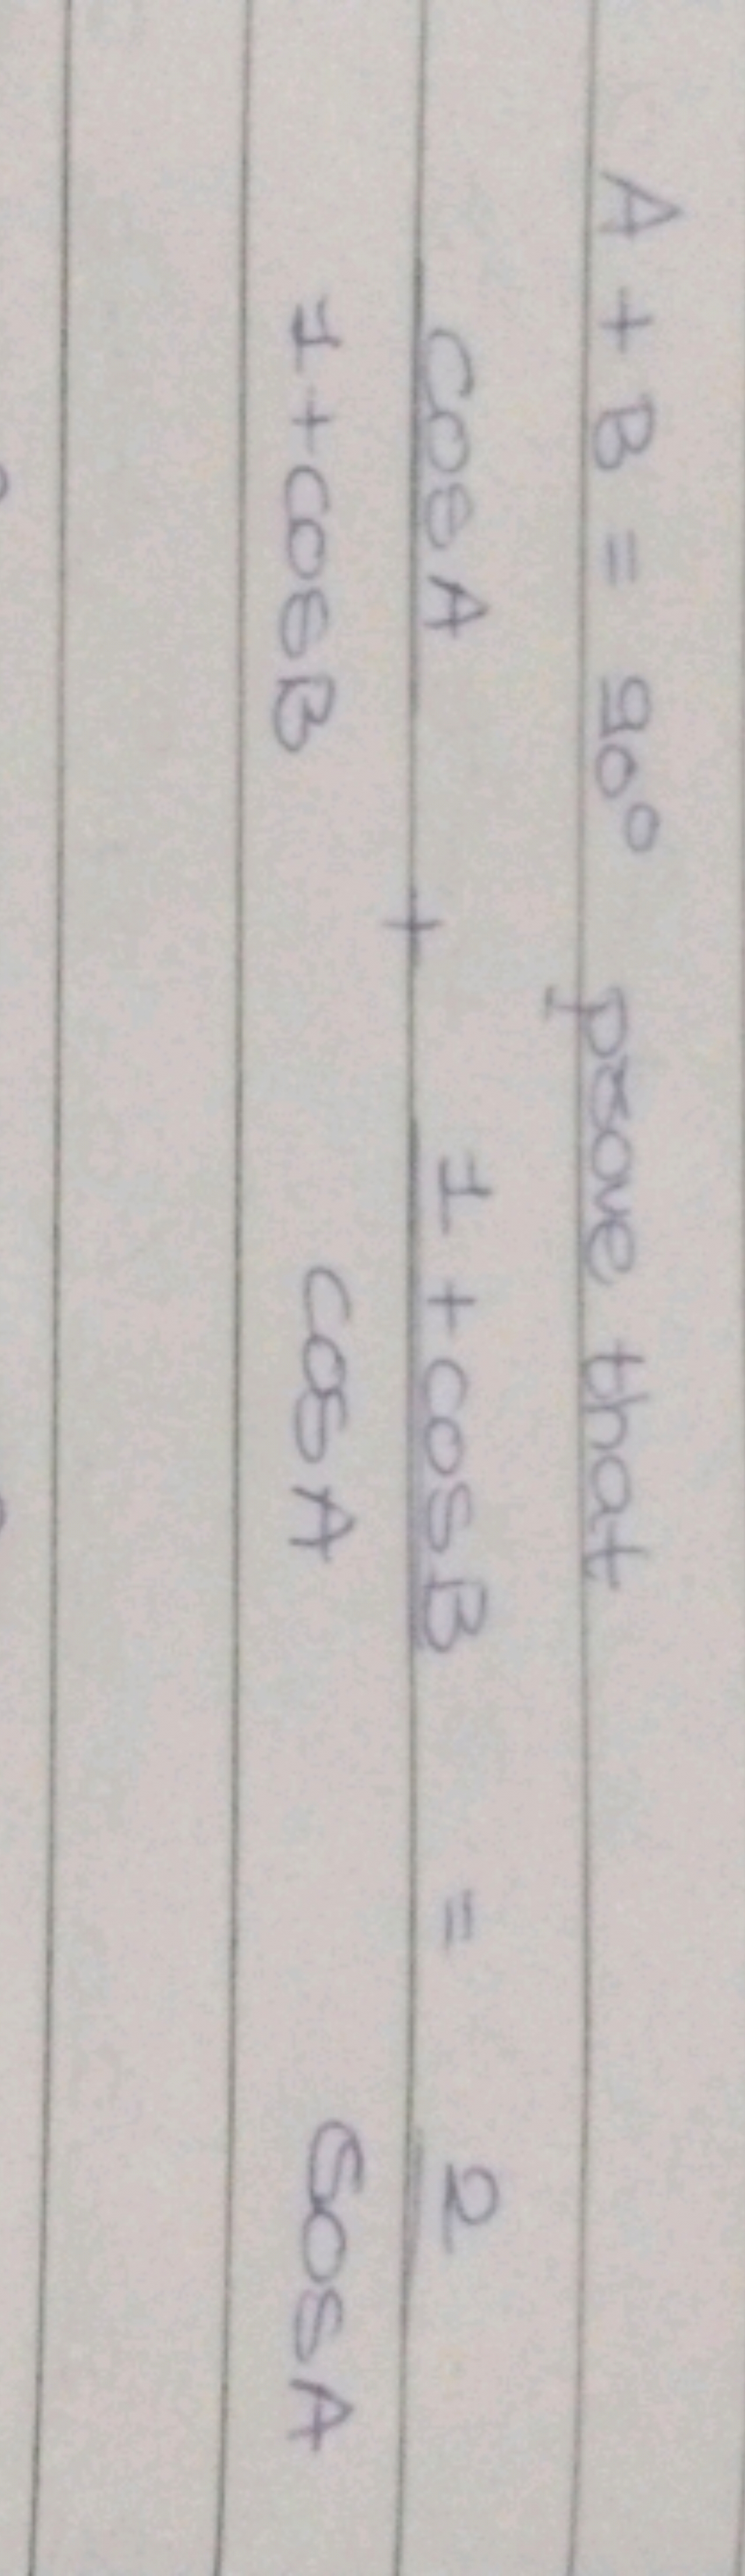 A + B = 90° prove that
cosA + 1 + cosB = 2
1 + cosB cosA cosA